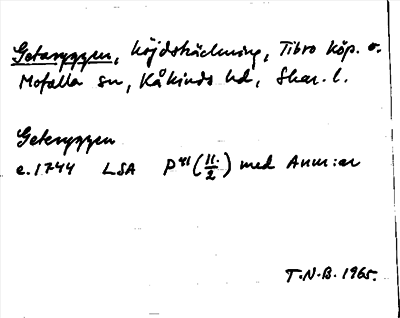 Getaryggen, höjdsträckning, Tibro köp. o.
Mofalla sn, Kåkinds hd, Skar. l.
Geteryggen
c. 1744 LSA P41 (11/2) med Anm:ar
T.N.B. 1965.